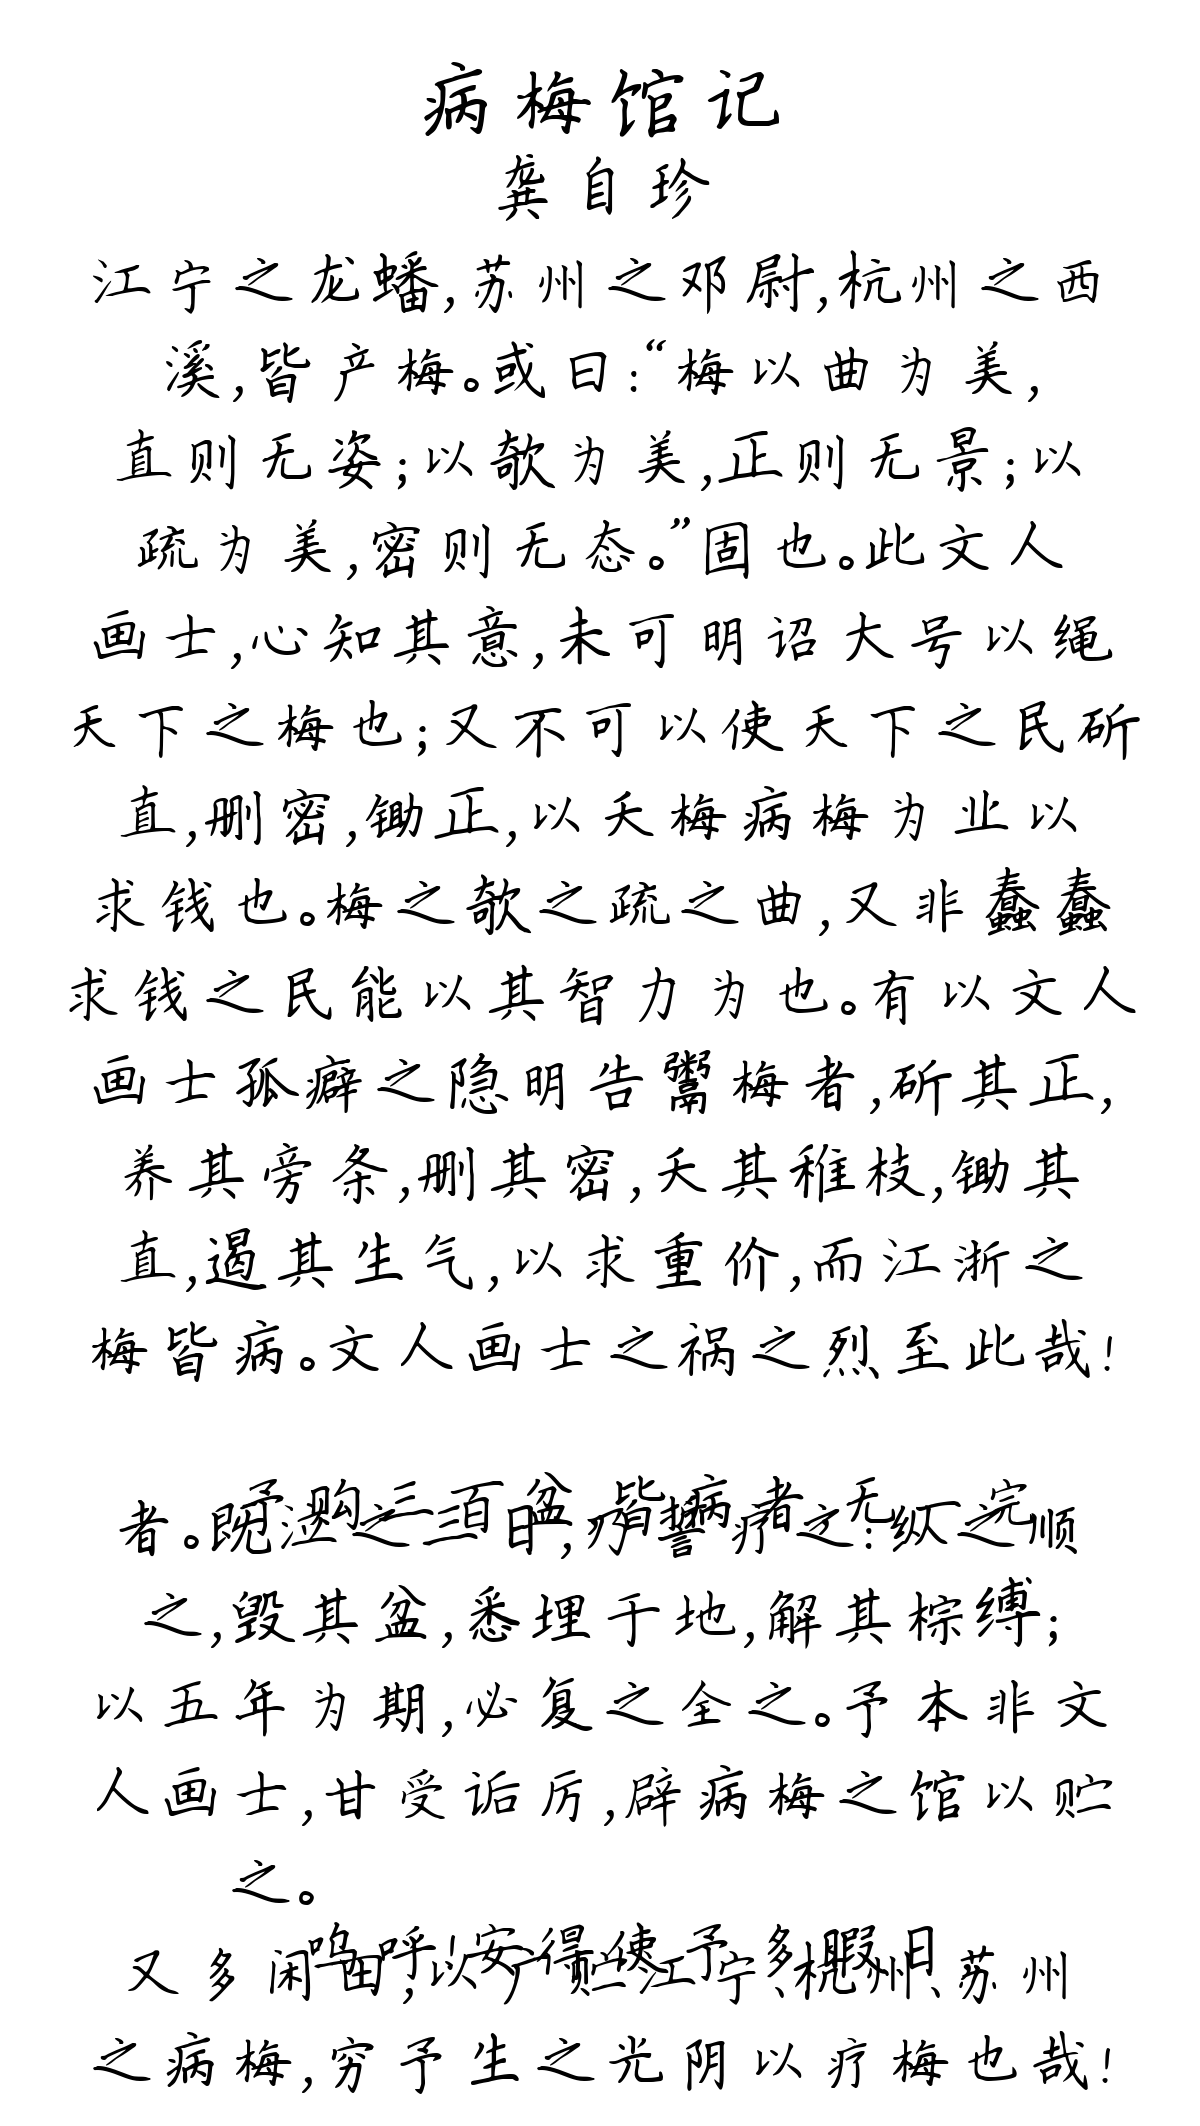 病梅馆记
龚自珍
江宁之龙蟠,苏州之邓尉,杭州之西
溪,皆产梅。或曰:“梅以曲为美,
直则无姿;以欹为美,正则无景;以
疏为美,密则无态。”固也。此文人
画士,心知其意,未可明诏大号以绳
天下之梅也;又不可以使天下之民斫
直,删密,锄正,以夭梅病梅为业以
求钱也。梅之欹之疏之曲,又非蠢蠢
求钱之民能以其智力为也。有以文人
画士孤癖之隐明告鬻梅者,斫其正,
养其旁条,删其密,夭其稚枝,锄其
直,遏其生气,以求重价,而江浙之
梅皆病。文人画士之祸之烈至此哉!
予购三百盆,皆病者,无一完
者。既泣之三日,乃誓疗之:纵之顺
之,毁其盆,悉埋于地,解其棕缚;
以五年为期,必复之全之。予本非文
人画士,甘受诟厉,辟病梅之馆以贮
之。
呜呼!安得使予多暇日,
又多闲田,以广贮江宁、杭州、苏州
之病梅,穷予生之光阴以疗梅也哉!